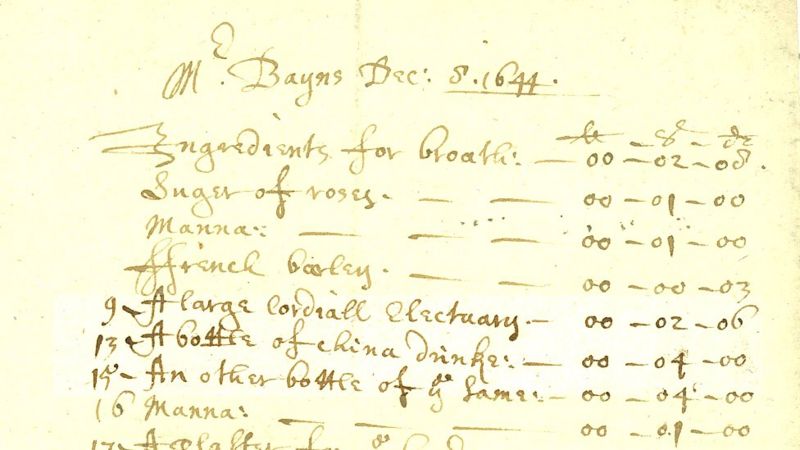 Mr. Bayns Dec: 8. 1644.
li – s – d
Ingredients for broath: — 00 – 02 – 08.
Suger of roses. — — 00 – 01 – 00
Manna: — — — 00 – 01 – 00
ffrench barley. — — 00 – 00 – 03
9 – A large Cordiall Electuary. – 00 – 02 – 06
13 – A bottle of China drinke: — 00 – 04 – 00
15 – An other bottle of ye same: – 00 – 04 – 00
16 Manna: — — — 00 – 01 – 00
17 – A plaster for ye